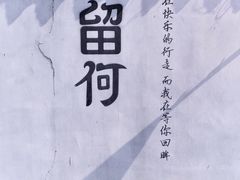 留何
在快乐的行走 而我在等你回眸